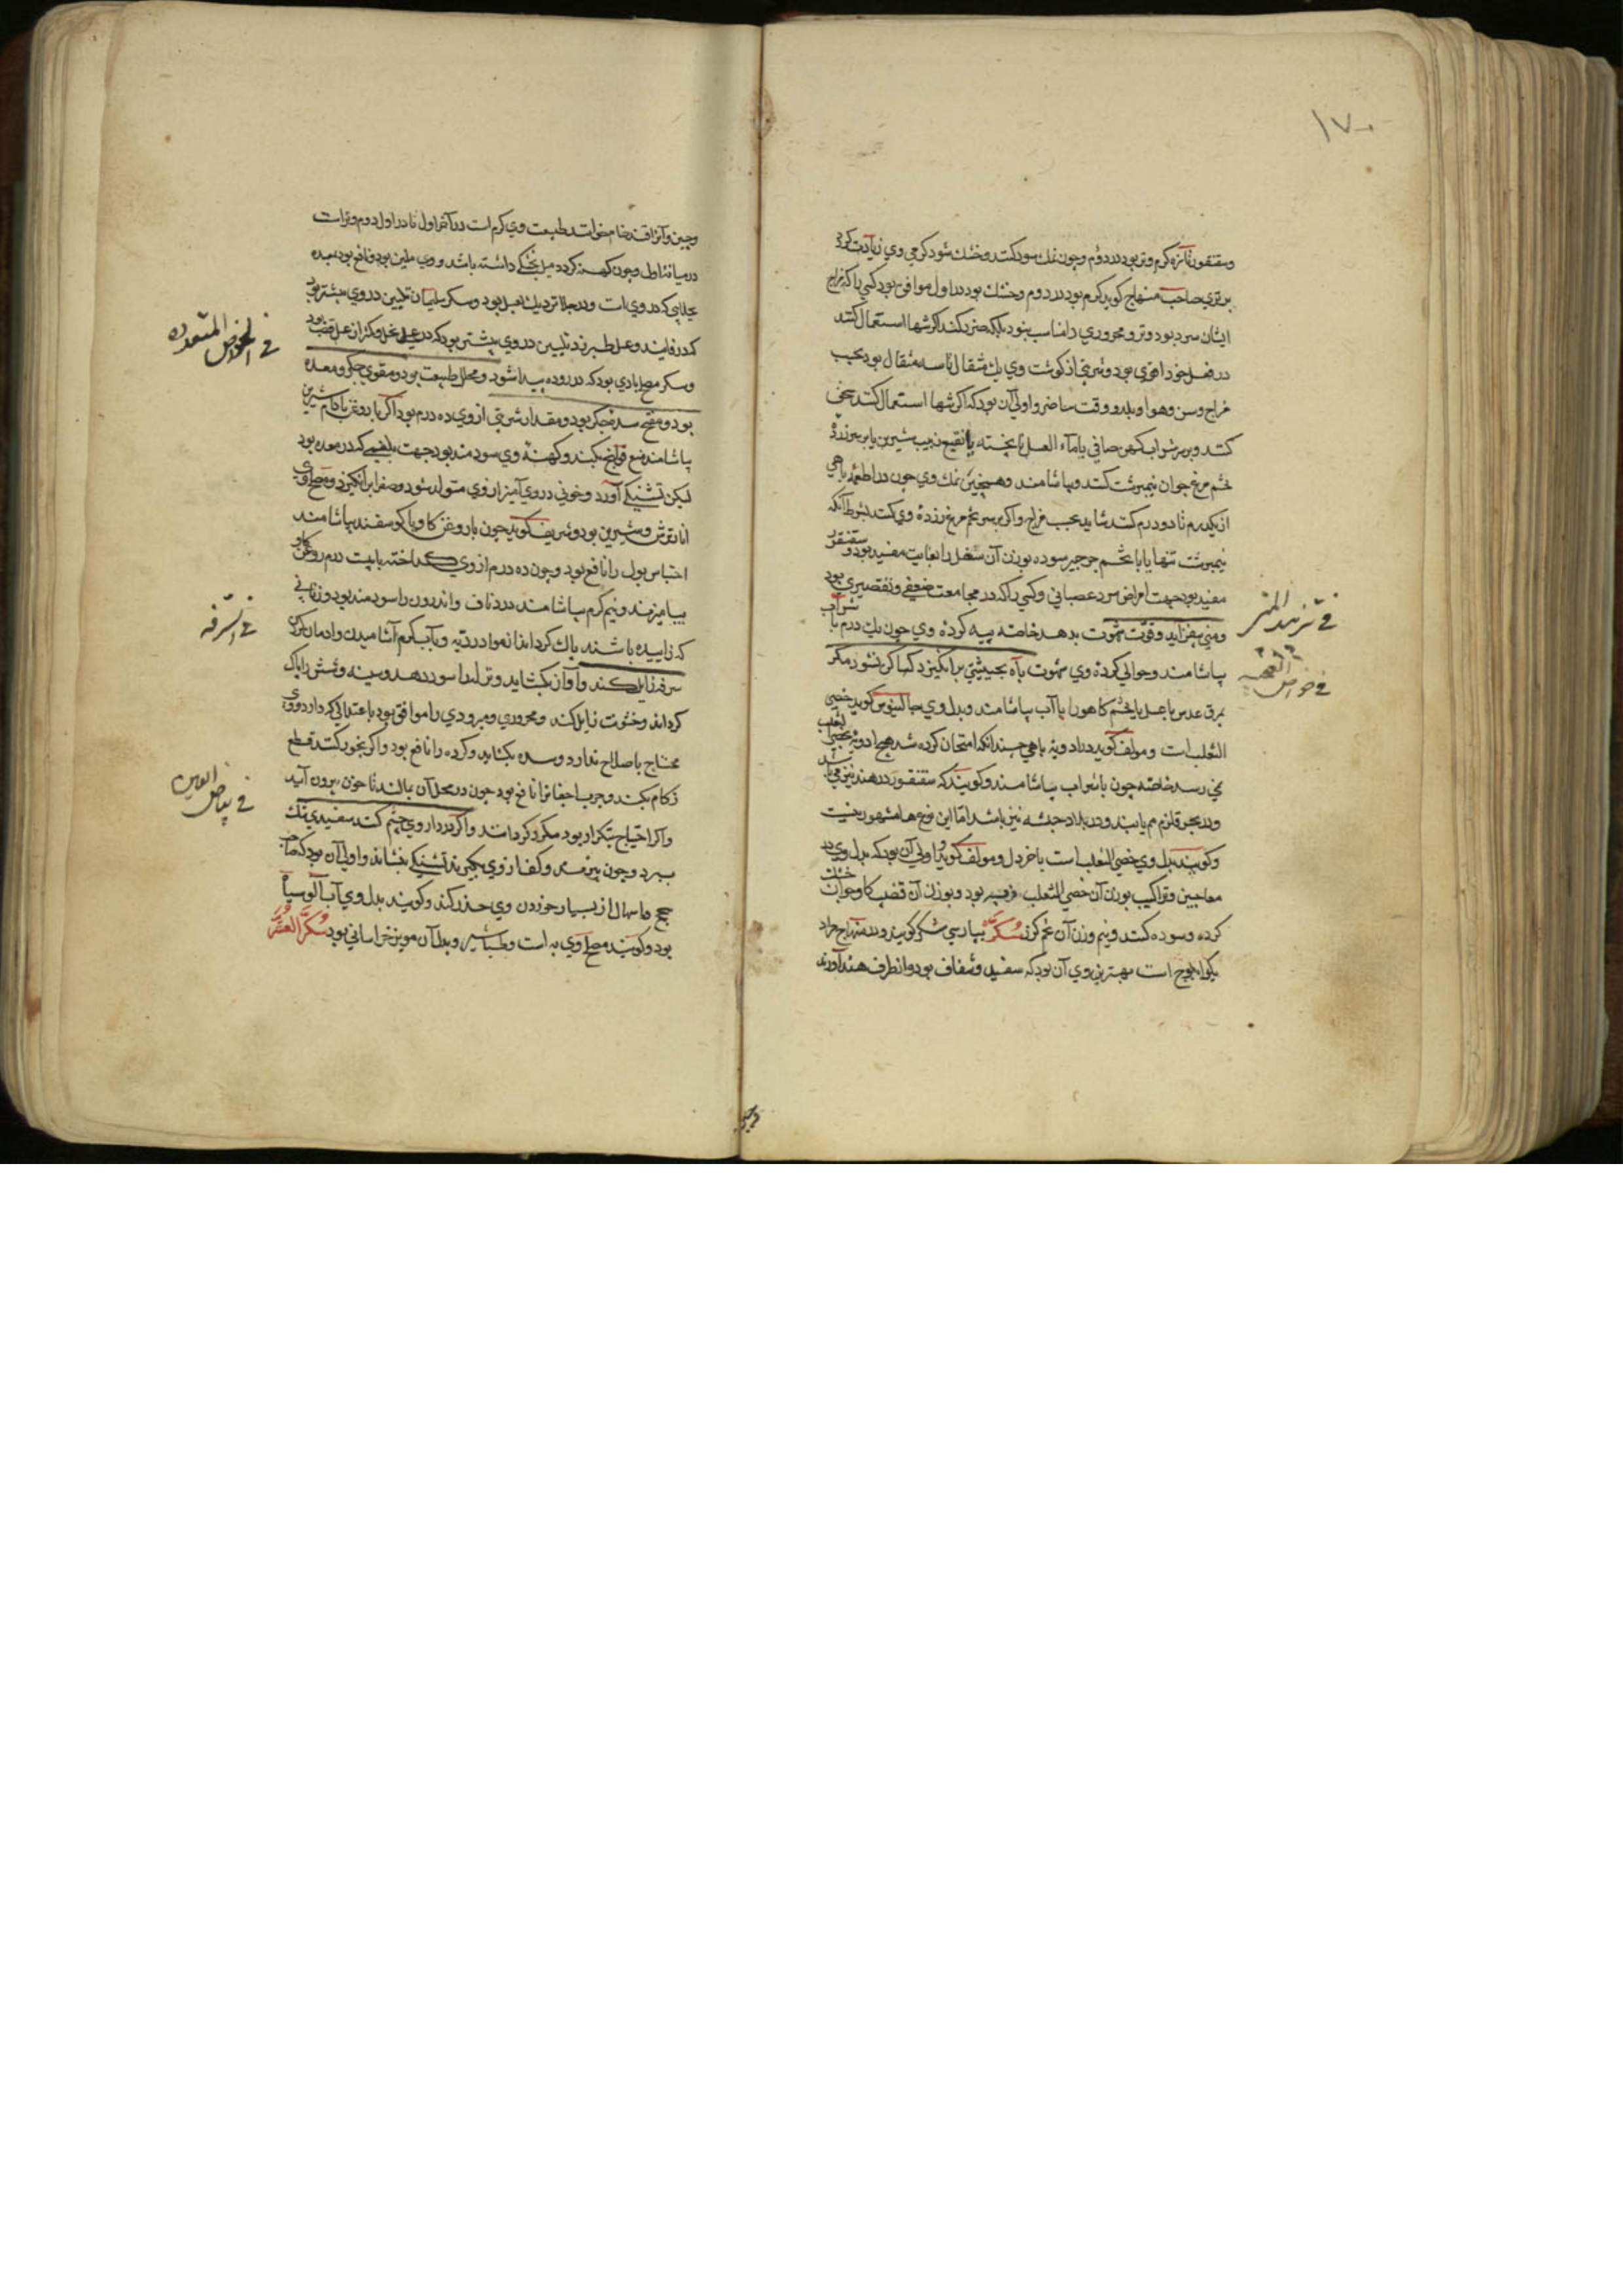 ١٧٠
وسقنقور تازه گرم و تر بود در دوم و چون نمک سود کنند و خشک شود گرمی وی زیادت گردد
بر تری صاحب منهاج گوید گرم بود در دوم و خشک بود در اول موافق بود کسی را که مزاج
ایشان سرد بود و تر و محروری را مناسب نبود بلکه ضرر کند اگر تنها استعمال کنند
در فصل خود اقوی بود و شربتی از گوشت وی یک مثقال تا سه مثقال بود بحسب
مزاج و سن و هوا و بلد و وقت حاضر و اولی آن بود که اگر تنها استعمال کنند سحق
کنند و بر سر شراب کهن صافی یا ماء العسل نا پخته یا نقیع زبیب شیرین یا بر سر زرده
تخم مرغ جوان نیمبرشت کنند و بیاشامند و همچنین نمک وی چون در اطعمه باهی
از یک درم تا دو درم کنند شاید بحسب مزاج و اگر بر سر تخم مرغ زرده وی کنند بشرط آنکه
نیمبرشت تنها یا با تخم جرجیر سوده بوزن آن شغل را بغایت مفید بود و سقنقور
مفید بود جهت امراض سرد عصبانی و کسی را که در مجامعت ضعفی و تقصیری بود
ومنی بیفزاید و قوت شهوت بدهد خاصه پیه گرده وی چون یک درم با شراب
بیاشامند و حوالی گرده وی شهوت باه بحیثیتی برانگیزد که ساکن نشود مگر
بمرق عدس با عسل یا بتخم کاهو را با آب بیاشامند و بدل وی جالینوس گوید خصی
الثعلب است و مولف گوید در ادویه باهی چندانکه امتحان کرده شد هیچ ادویه بخصی الثعلب
نمی رسد خاصه چون با شراب بیاشامند و گویند که سقنقور در هند نیز می باشد
و در بحر قلزم هم یابند و در بلاد حبشه نیز باشد اما این نوع ها مشهور نیست
و گویند بدل وی خصی الثعلب است با خردل و مولف گوید اولی آن بود که بدل وی در
معاجین و تراکیب بوزن آن خصی الثعلب فربه بود و بوزن آن قضیب گاو جوان خشک
کرده و سوده کنند و نیم وزن آن تخم گزر سُكَّر بپارسی شکر گویند و در منهاج مراد
بکوا بلوج است بهترین وی آن بود که سفید و شفاف بود و از طرف هند آورند
فی تزئید المنی
فی خواص العجیبه
وچین و آنرا قند خام خوانند طبیعت وی گرم است در آخر اول تا در اول دوم و تر است
در میانه اول و چون کهنه گردد میل بخشکی داشته باشد و وی ملین بود و نافع بود معده
بجلایی که در وی است و در جلا نزدیک بعسل بود و سکر سلیمان تلیین در وی بیشتر بود
که در فانید و عسل طبرزد تلیین در وی بیشتر بود که در عسل نحل و کمتر از عسل قصب بود
وسکر مصلح بادی بود که در روده پیدا شود و محلل طبیعت بود و مقوی جگر و معده
بود و مفتح سده جگر بود و مقدار شربتی از وی ده درم بود اگر با روغن بادام شیرین
بیاشامند منع قولنج بکند و کهنه وی سودمند بود جهت بلغمی که در معده بود
لیکن تشنگی آورد و خونی دردی آمیز از وی متولد شود و صفرا برانگیزد و مصلح وی
انار ترش و شیرین بود و شریف گوید چون با روغن گاو یا گوسفند بیاشامند
احتباس بول را نافع بود و چون ده درم از وی گداخته با بیست درم روغن گاو
بیامیزند و نیم گرم بیاشامند درد ناف و اندرون را سودمند بود و زنانی
که زاییده باشند پاک گرداند از مواد ردیه و با آب گرم آشامیدن وادمان کردن
سرفه زایل کند و آواز بگشاید و نزله را سود دهد و سینه و شش را پاک
گرداند و خشونت زایل کند و محروری و مبرودی را موافق بود باعتدالی که دارد و وی
محتاج باصلاح ندارد و سده بگشاید و گرده را نافع بود و اگر بخور کنند قطع
زکام بکند و جرب اجفانرا نافع بود چون در محل آن بمالند تا خون بیرون آید
واگر احتیاج بتکرار بود مکرر گردانند و اگر در داروی چشم کنند سفیدی تنک
ببرد و چون بپزند و کف از وی بگیرند تشنگی بنشاند و اولی آن بود که صاحب
سحج واسهال از بسیار خوردن وی حذر کند و گویند بدل وی آب آلوی سیاه
بود و گویند مصلح وی به است و طباشیر و بدل آن مویز خراسانی بود سُكَّرُ العُشَر
فی الخواص المتعدده
فی السرفه
فی بیاض العین
وچین